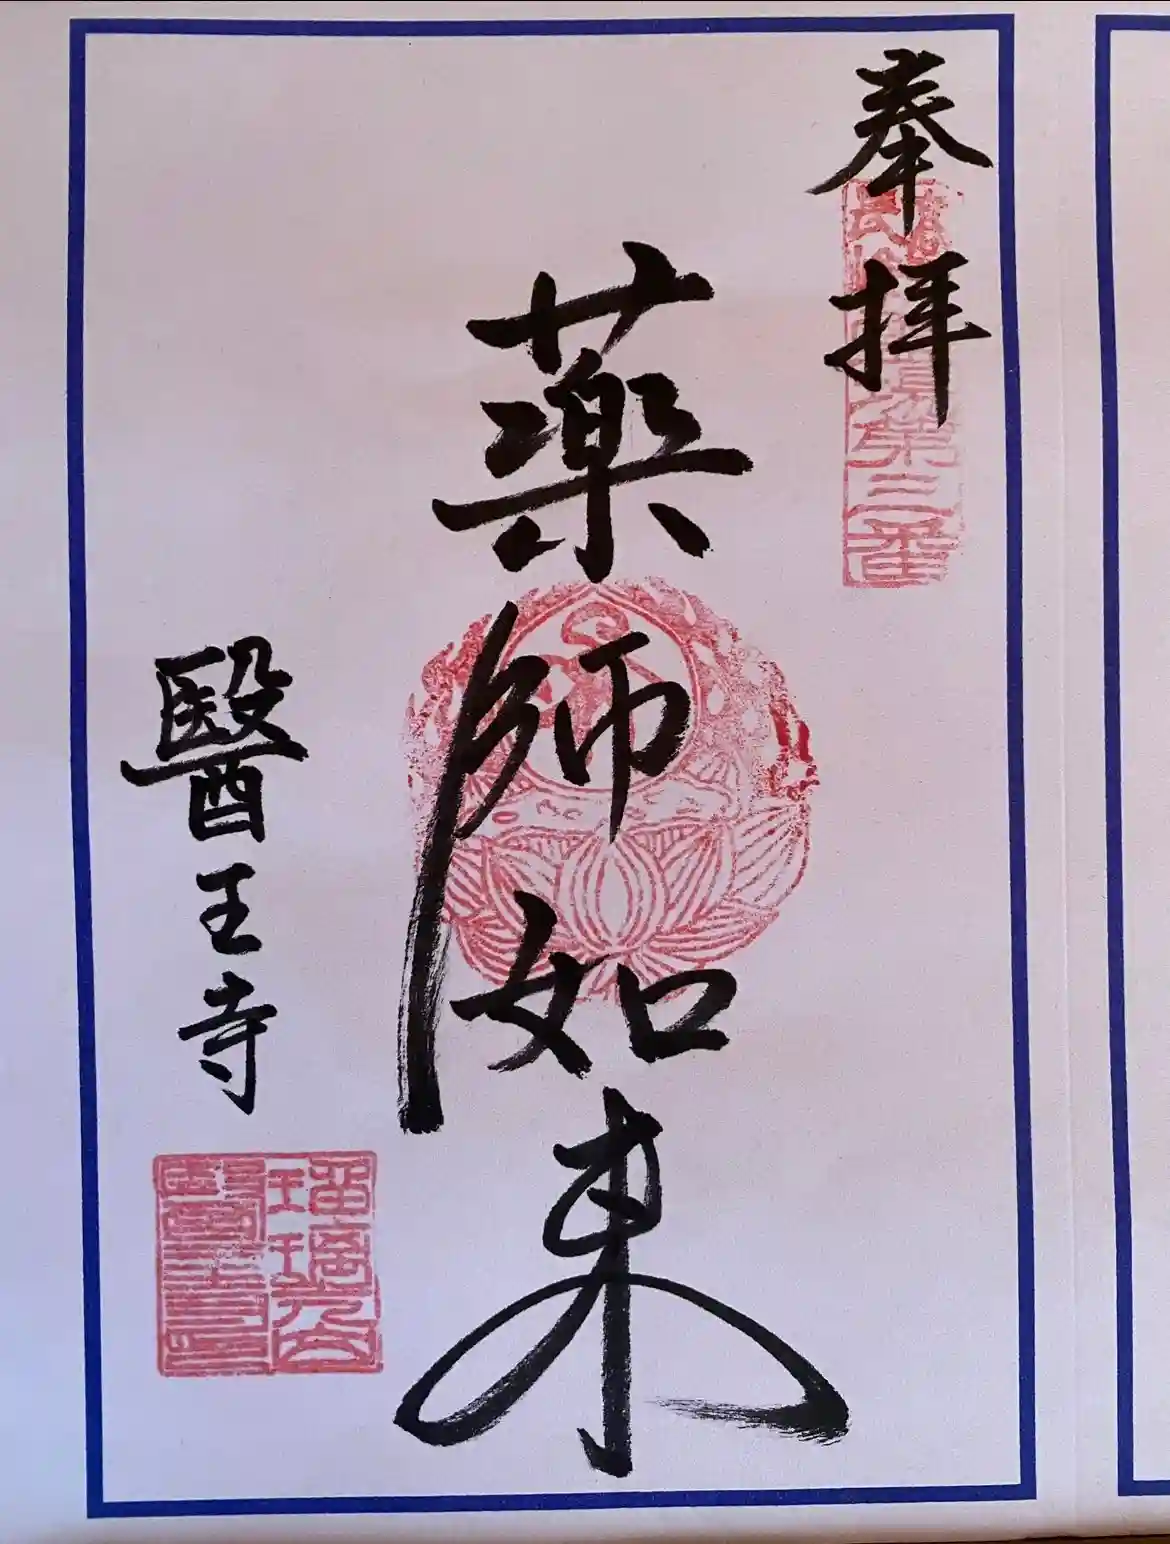 奉拝
第三番
薬師如来
醫王寺
瑠璃光